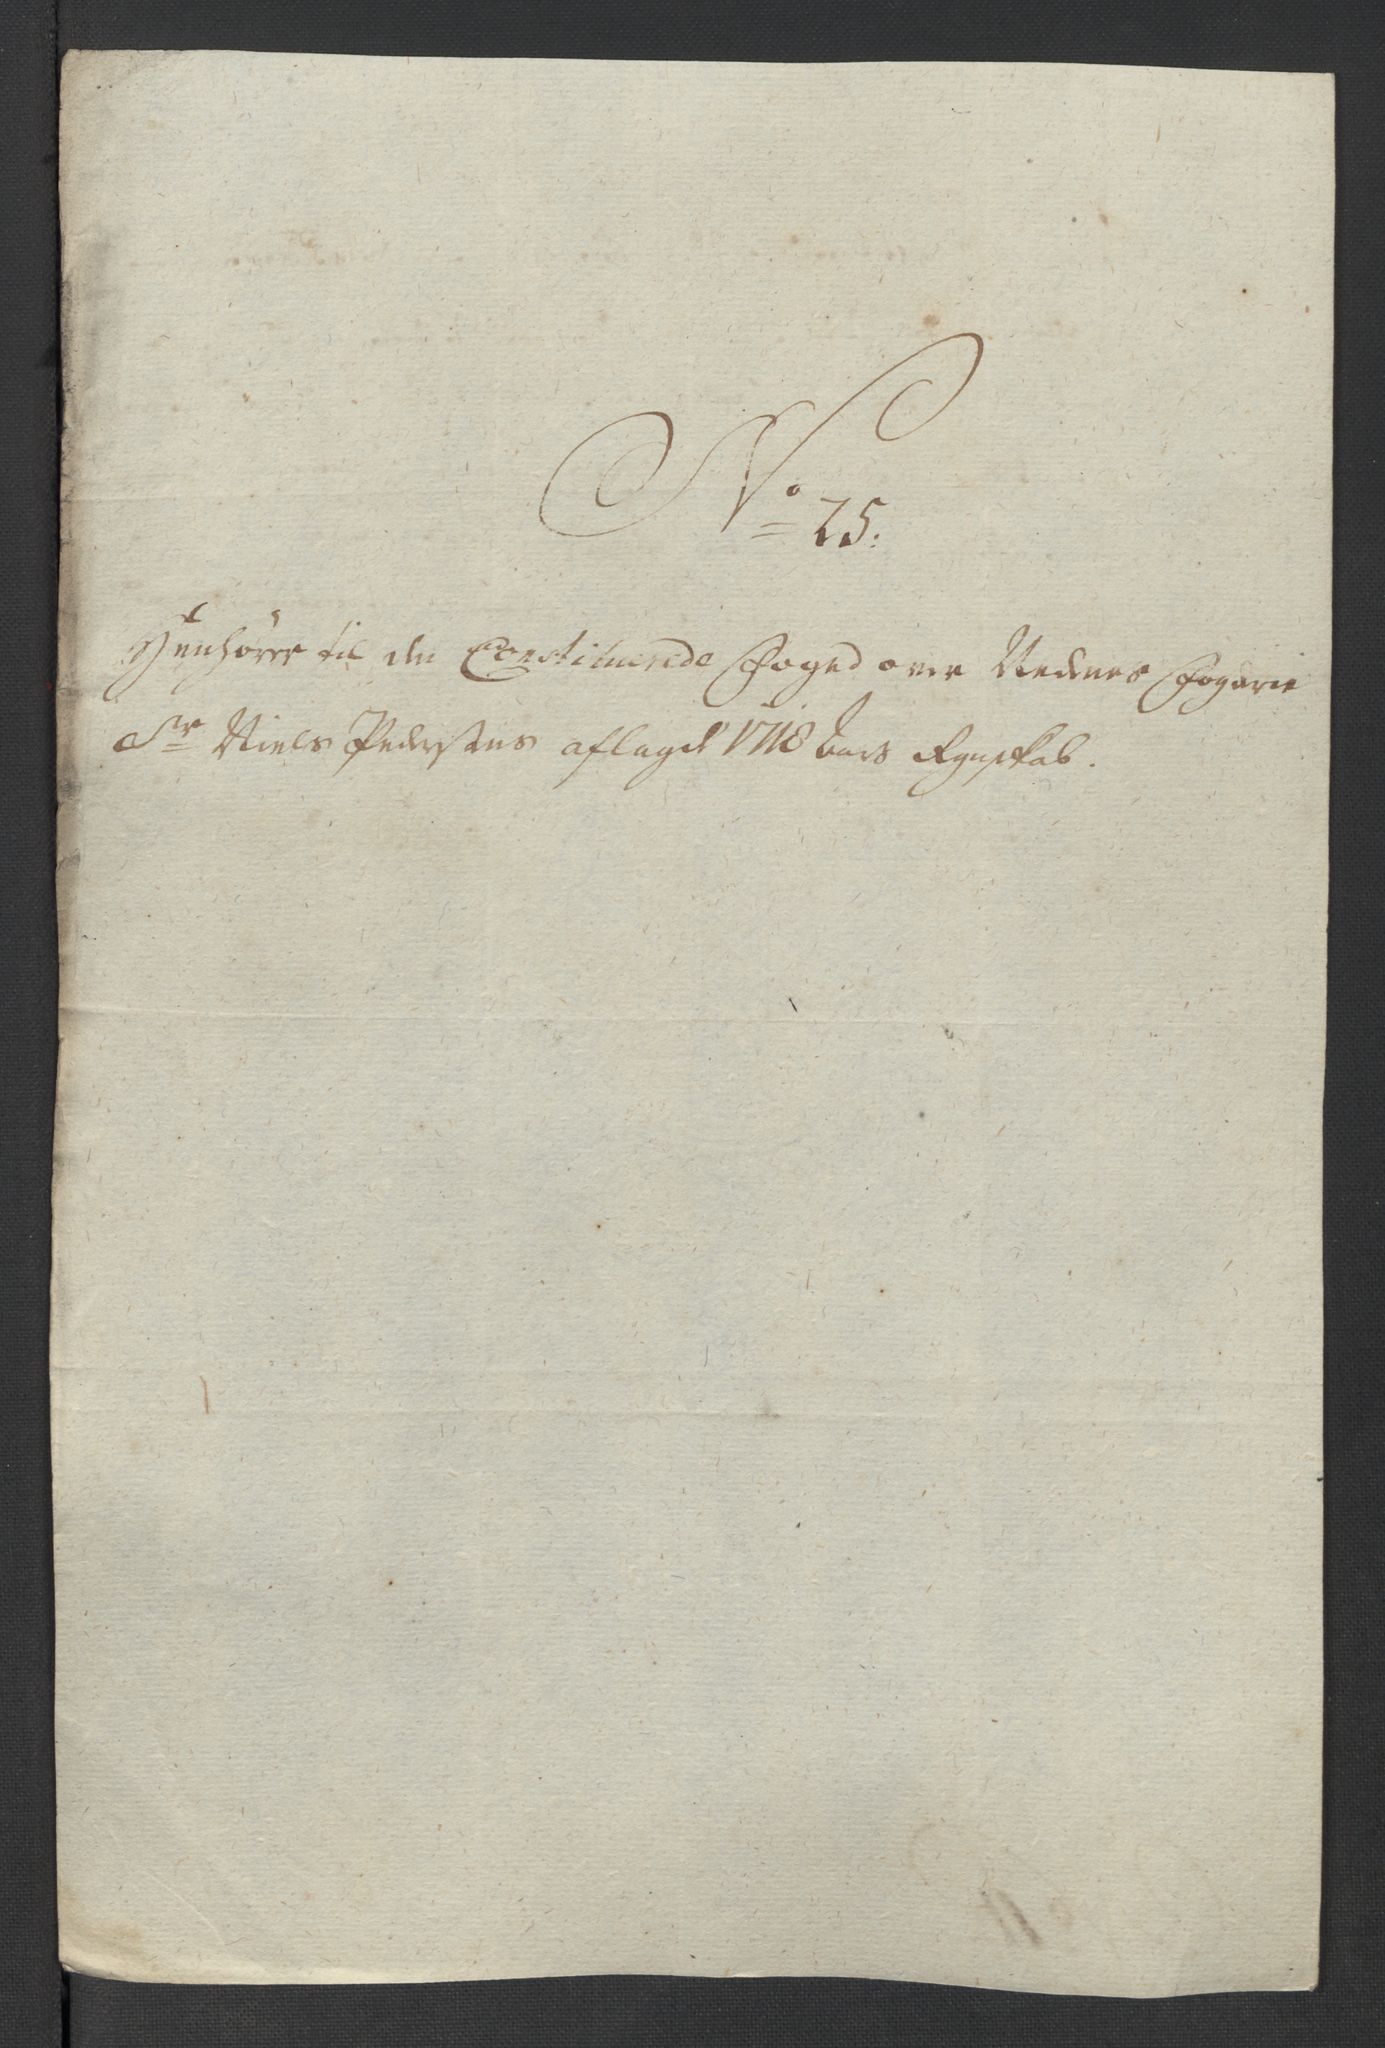 No 25:
Henhörer til den Constituerede Foged over Nedenes Fogderie
Sr Niels Pedersens aflagde 1718 Aars Regnskab.